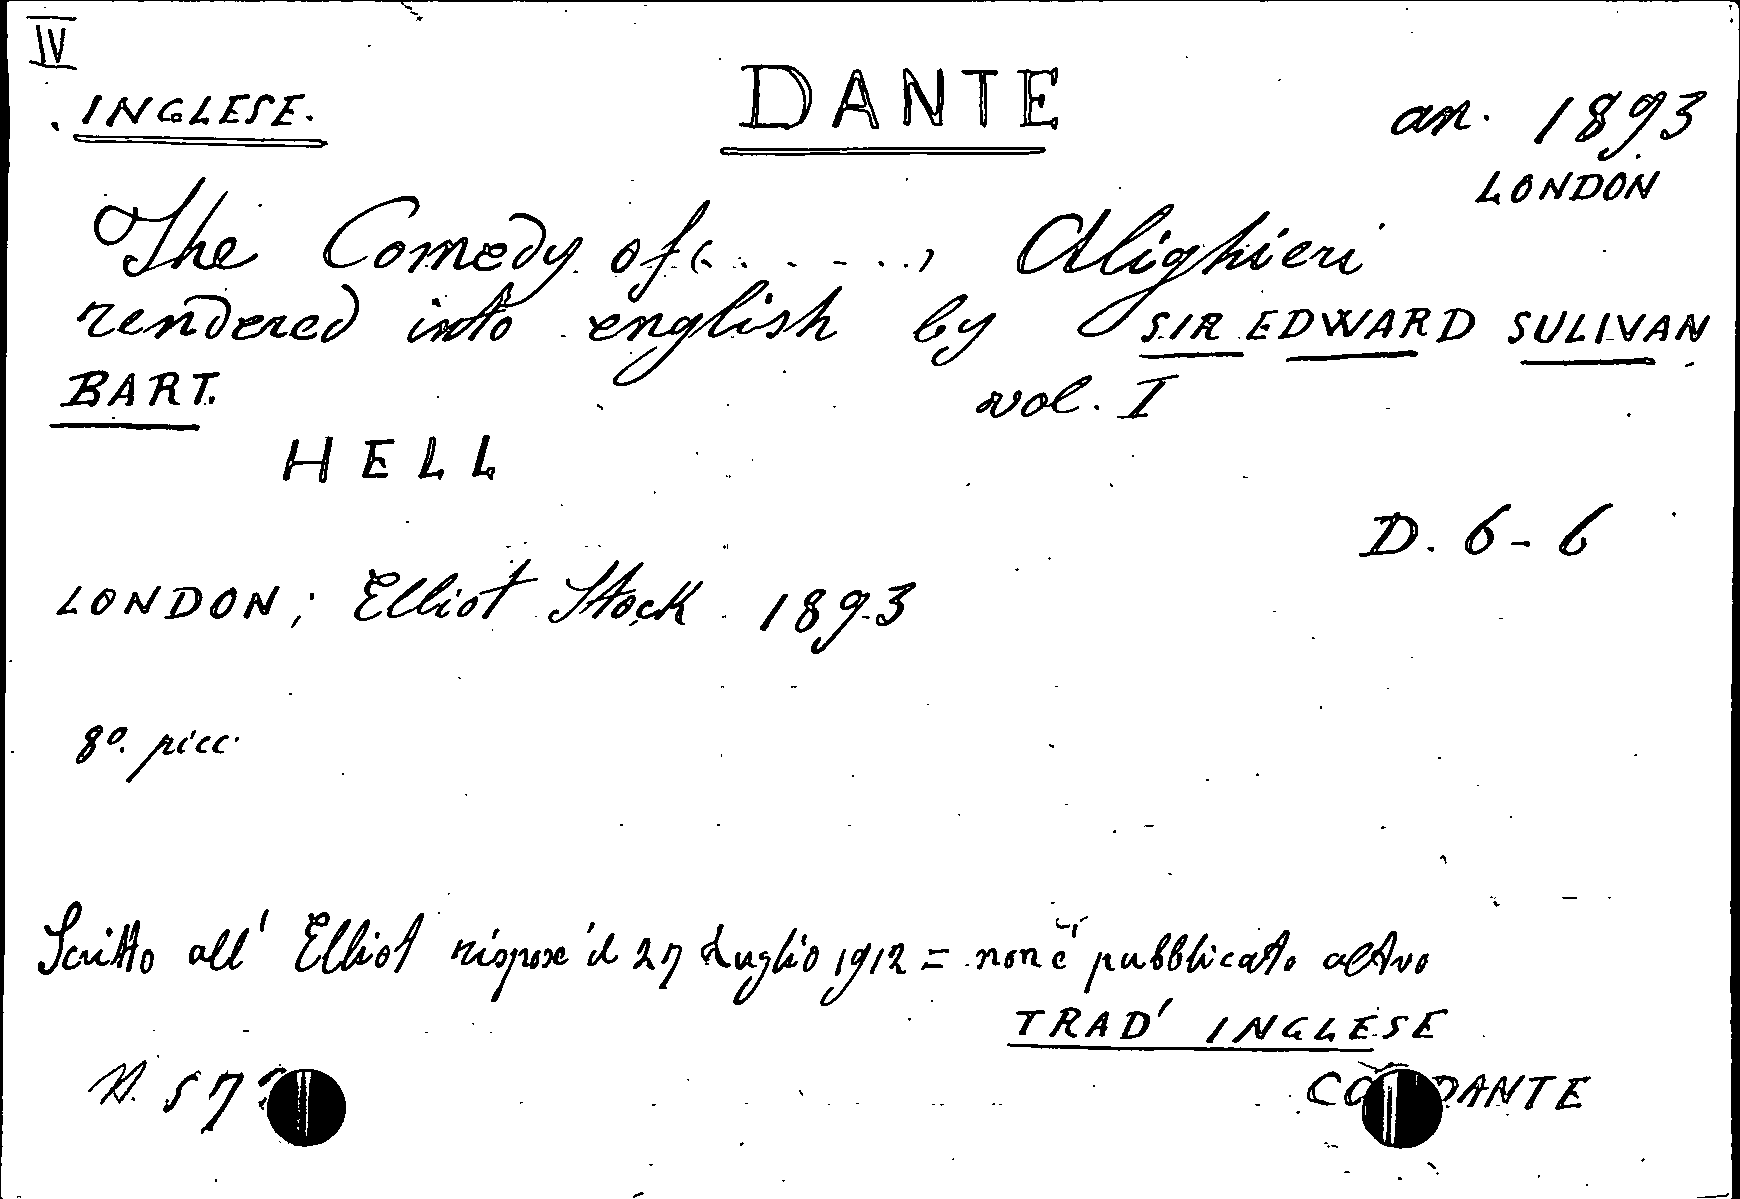 IV
INGLESE.
DANTE
an. 1893
LONDON
The Comedy of (. . . . . .) Alighieri
rendered into english by SIR EDWARD SULIVAN
BART. vol. I
HELL
D. 6-6
LONDON; Elliot Stock 1893
8°. picc.
Scritto all' Elliot rispose il 27 Luglio 1912 = non è pubblicato altro
TRAD' INGLESE
N. 57
DANTE